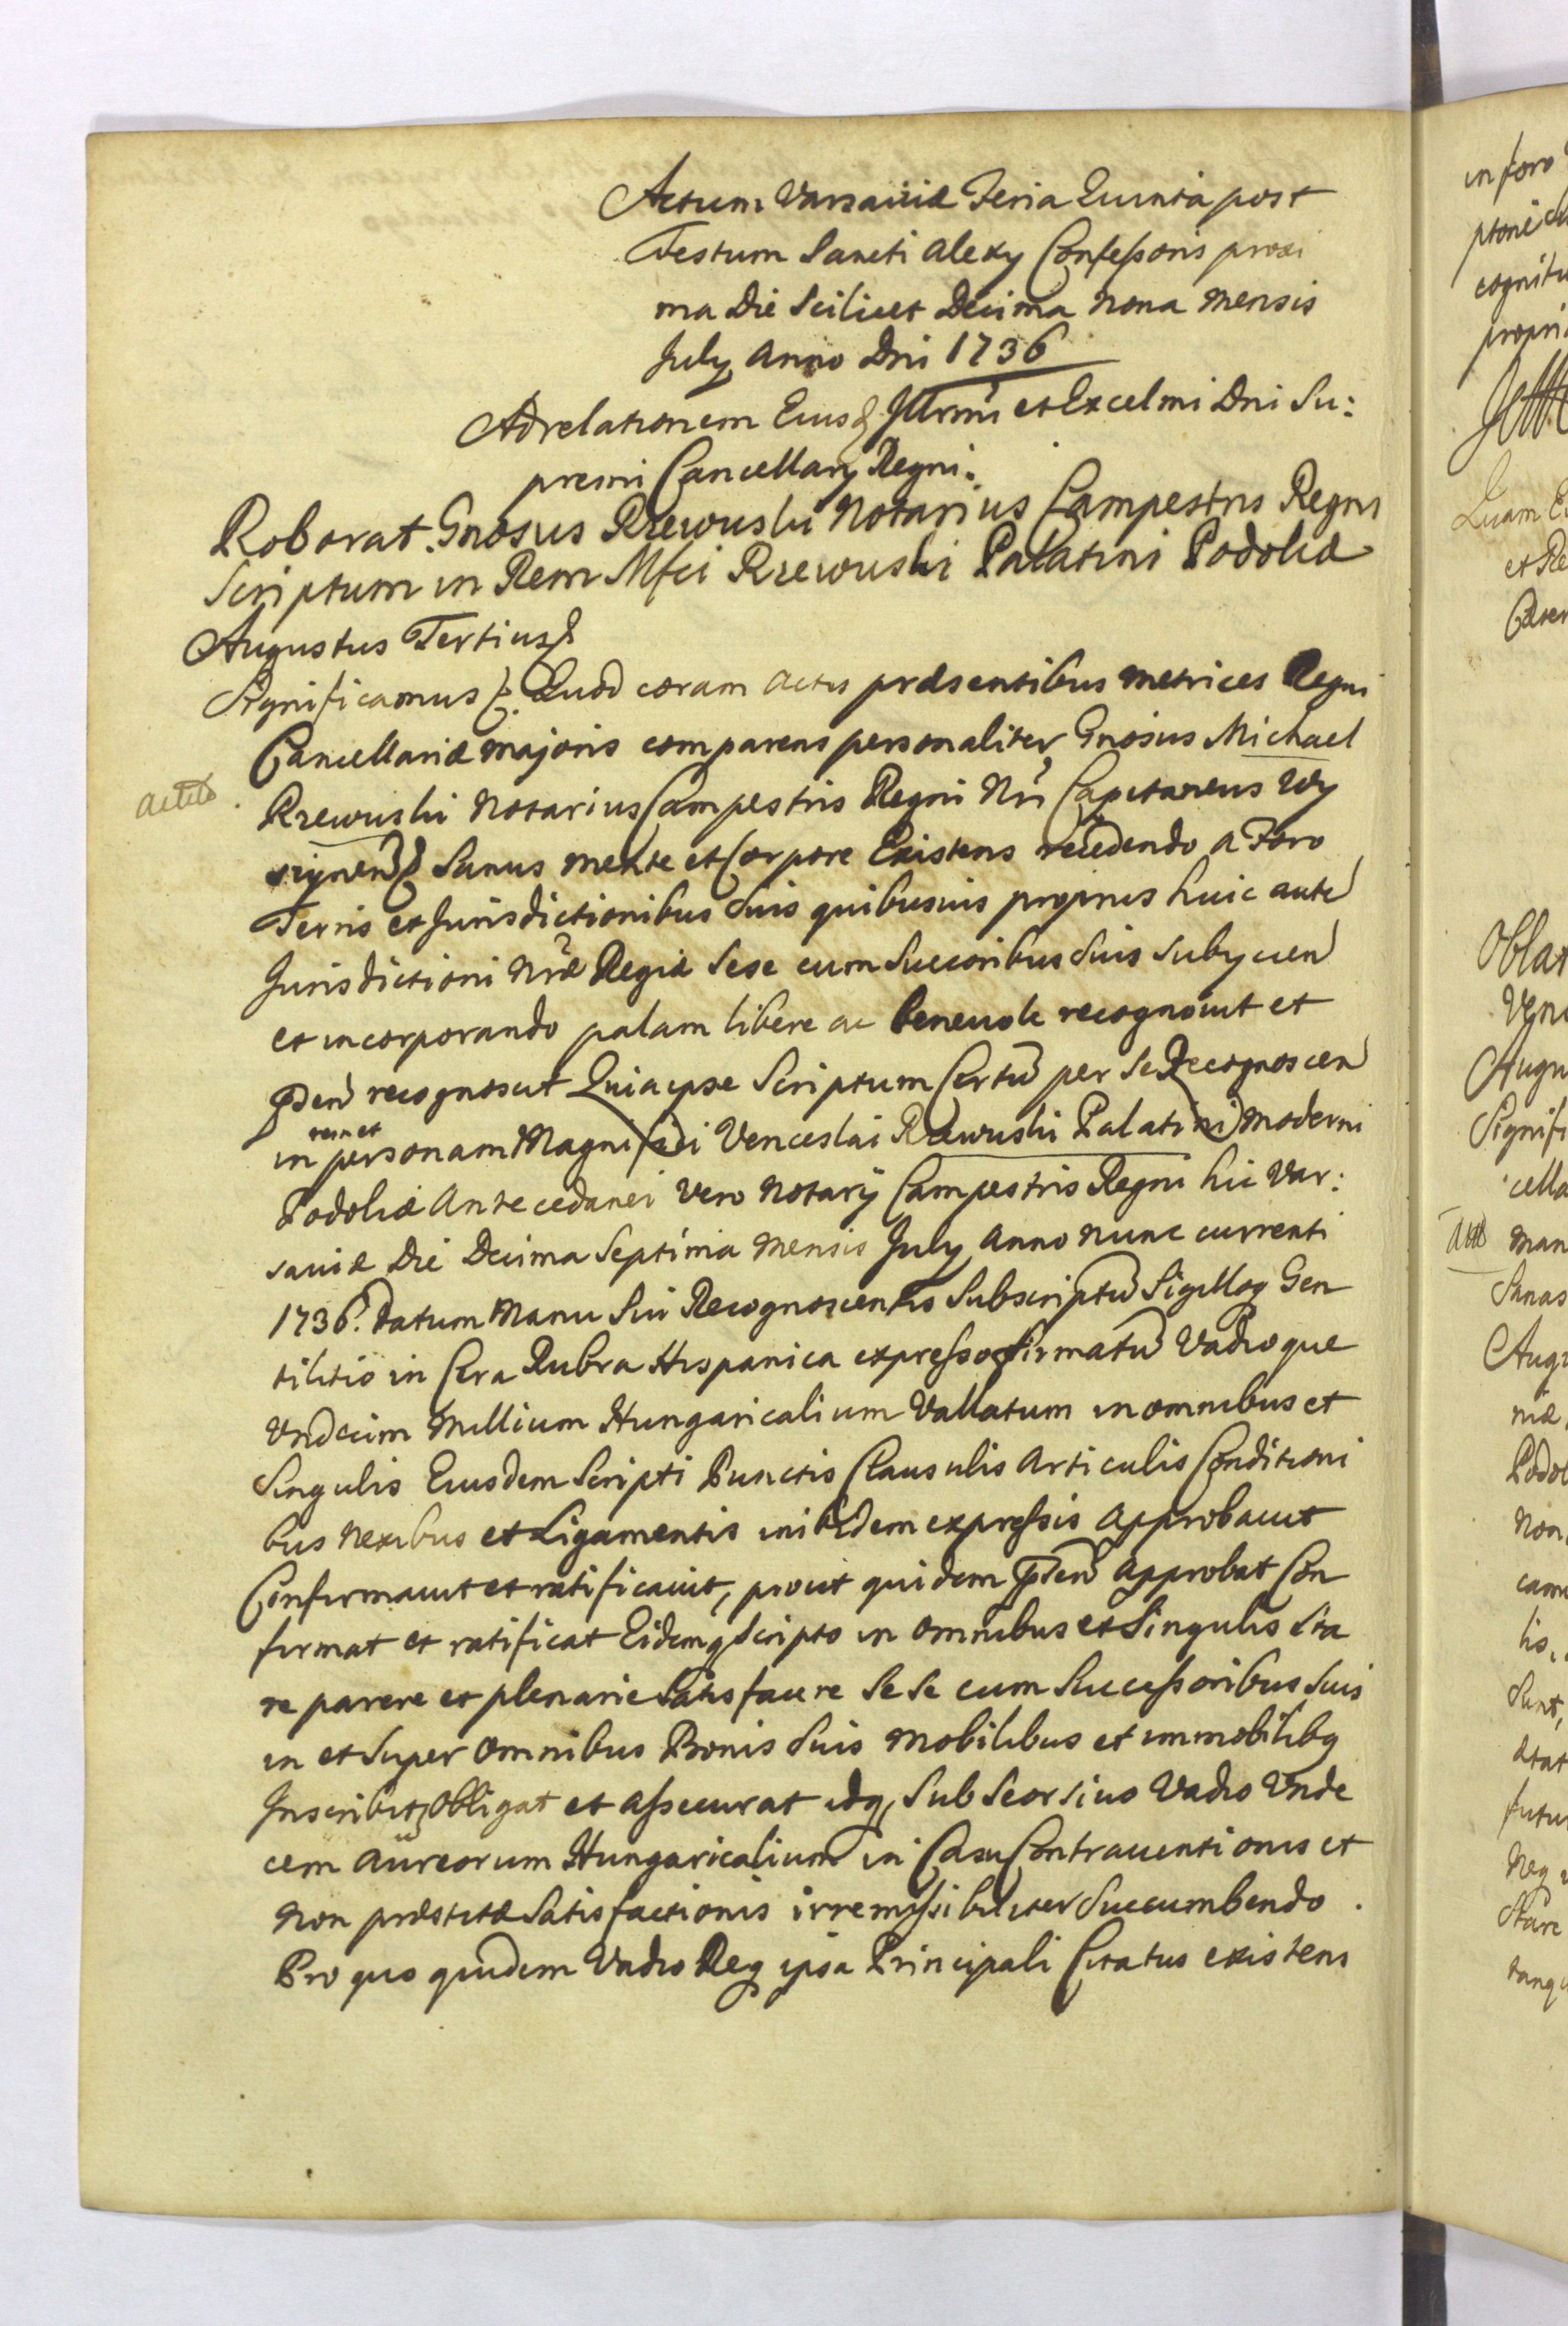 Actum Varsaviæ Feria Quinta post
Festum Sancti Alexy Confessoris proxi
ma Die Scilicet Decima Nona Mensis
July Anno Dni 1736
Ad relationem Eiusd Illrmi et Excelmi Dni Su:
premi Cancellary Regni.
Roborat. Gnosus Rzewuski Notarius Campestris Regni
Scriptum in Rem Mfci Rzewuski Palatini Podoliæ
Augustus Tertius
Significamus Quod coram Actis præsentibus Metrices Regni
Cancellariæ Majoris comparens personaliter Gnosus Michael
Rzewuski Notarius Campestris Regni Nri Capitaneus Wy
Sanus mente et Corpore Existens recedendo a Foro
Terris et Jurisdictionibus Suis quibusvis proprus huic aute
Jurisdictioni Nræ Regiæ Sese cum Succoribus Suis Subycien
et incorporando palam libere ac benevole recognovit et
recognoscit Quia ipse Scriptum Certu per Se Recognoscen
rem et
in personam Magnifici Venceslai Rzewuski Palatini Moderni
Podoliæ Antecedanei Vero Notarÿ Campestris Regni hic Var:
saviæ Die Decima Septima Mensis July Anno nunc currenti
1736. Datum Manu Sui Recognoscentis Subscriptu Sigilloq Gen
tilitio in Cera Rubra Hispanica expresso firmatu Vadioque
Undecim Millium Hungaricalium Vallatum in omnibus et
Singulis Eiusdem Scripti Punctis Clausulis Articulis Conditioni
bus Nexibus et Ligamentis inibidem expressis Approbavit
Confirmavit et ratificavit, prout quidem Approbat Con
firmat et ratificat Eidemq Scripto in omnibus et Singulis Sta
re parere et plenarie Satisfacere Se Se cum Successoribus Suis
in et Super Omnibus Bonis Suis Mobilibus et immobilibq
Inscribit Obligat et assecurat idq, Sub Seorsivo Vadio Unde
cem Aureorum Hungaricalium in Casu Contraventionis et
Non præstitæ Satisfactionis irremissibiliter Succumbendo.
Pro quo quidem Vadio Req ipsa Principali Citatus existens